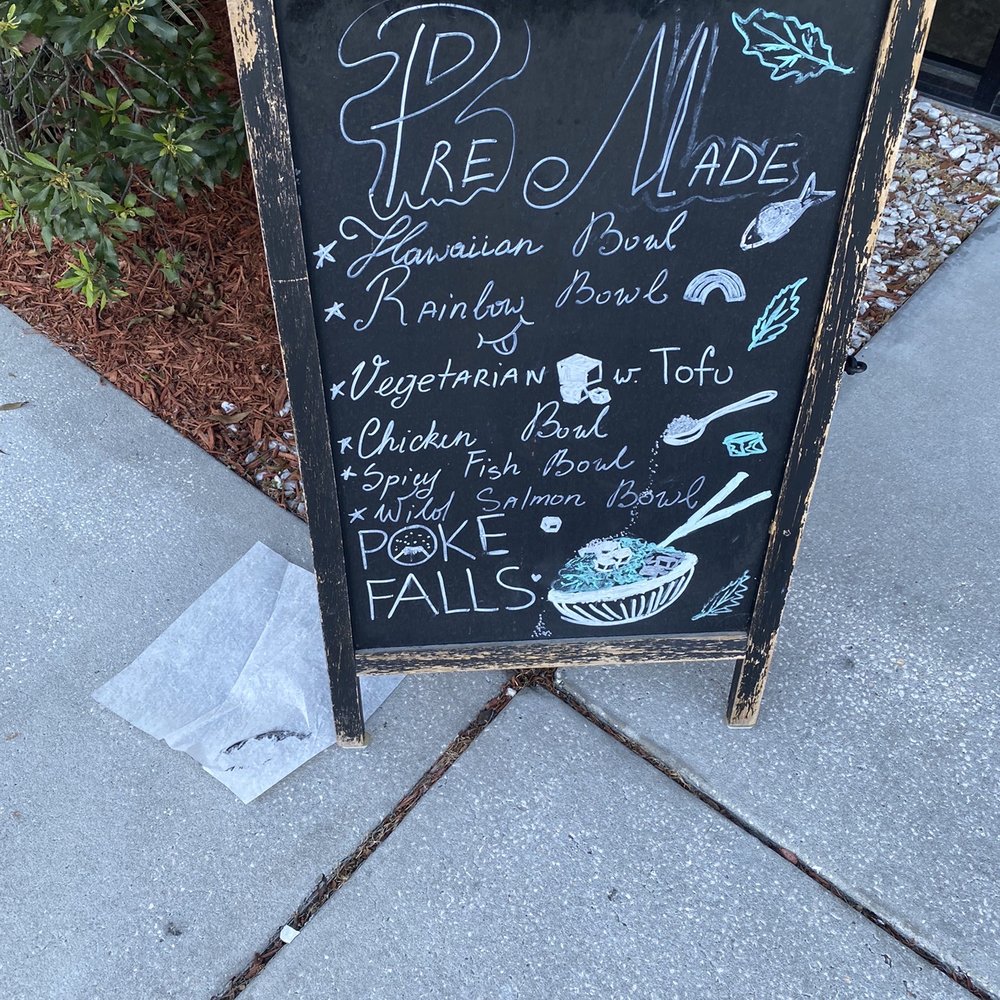 PRE MADE
Hawaiian Bowl
Rainbow Bowl
Vegetarian w. Tofu
Chicken Bowl
Spicy Fish Bowl
Wild Salmon Bowl
POKE
FALLS